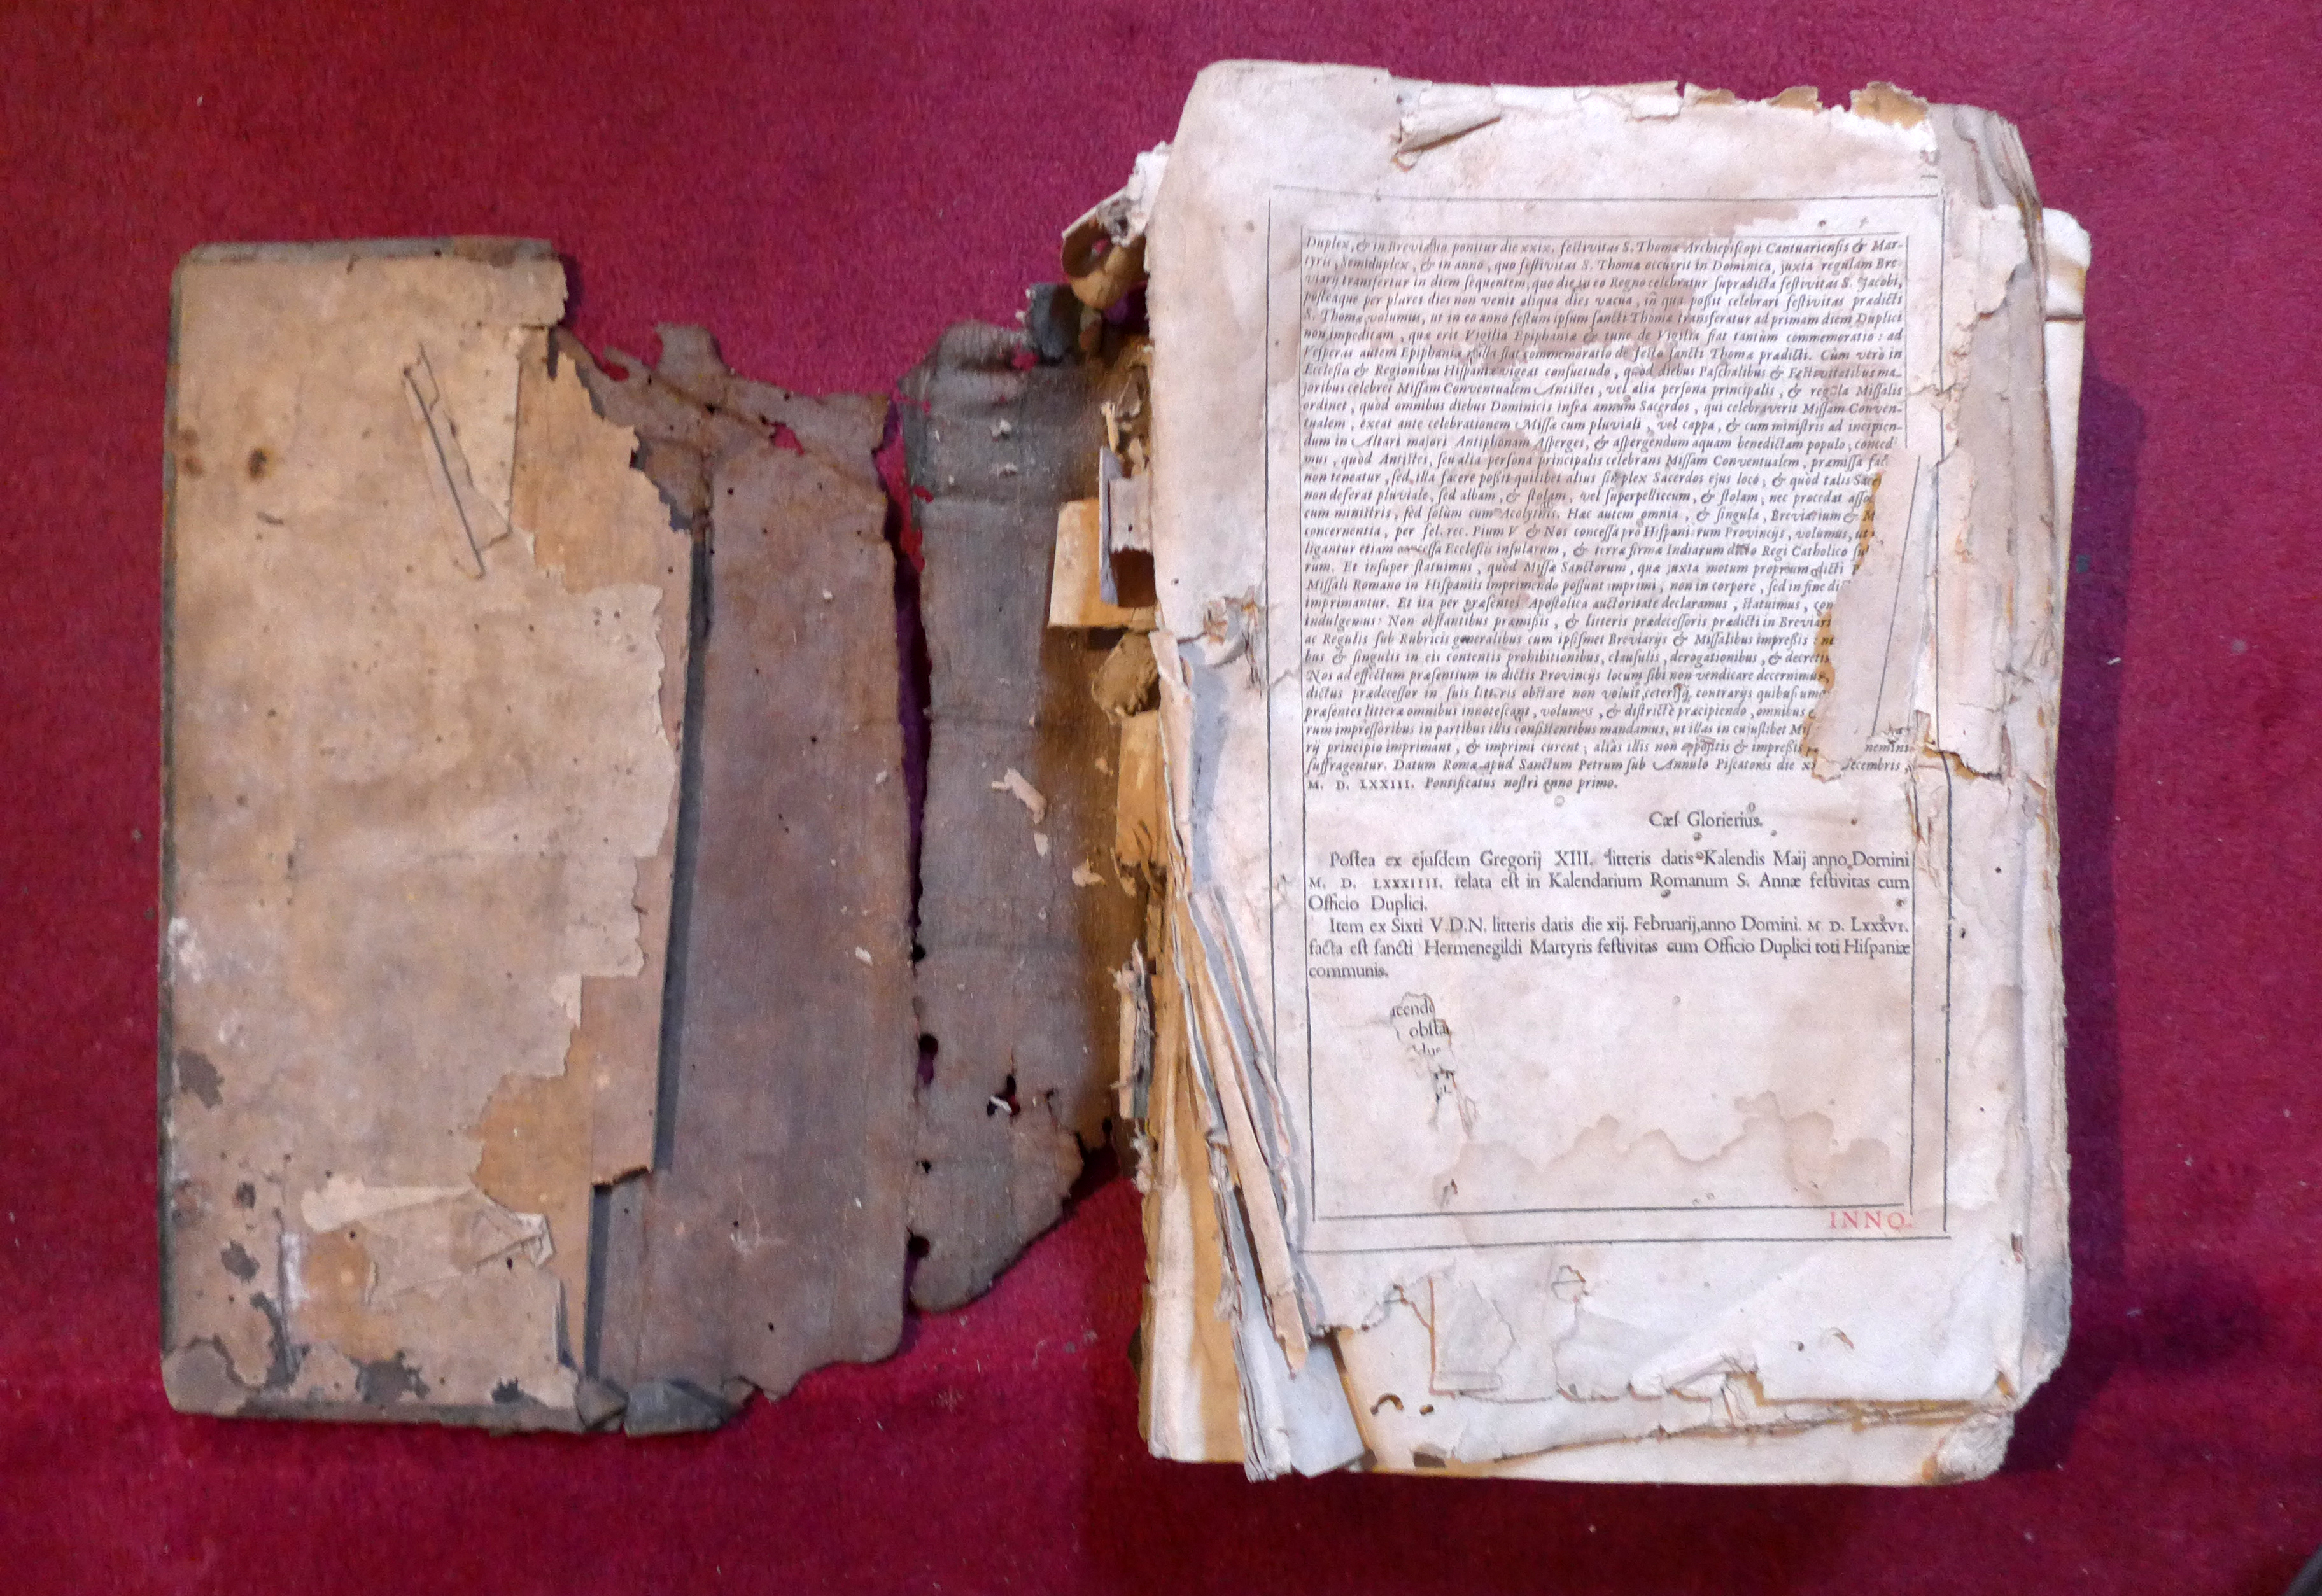 Duplex, & in Breviario ponitur die xxix. feſtivitas S. Thomæ Archiepiſcopi Cantuarienſis & Mar-
tyris, Semiduplex, & in anno, quo feſtivitas S. Thomæ occurrit in Dominica, juxta regulam Bre
viarij transfertur in diem ſequentem, quo die in eo Regno celebratur ſupradicta feſtivitas S. Jacobi,
poſteaque per plures dies non venit aliqua dies vacua, in qua poßit celebrari feſtivitas prædicti
S. Thomæ, volumus, ut in eo anno feſtum ipſum ſancti Thomæ transferatur ad primam diem Duplici
non impeditam, quæ erit Vigilia Epiphaniæ & tunc de Vigilia fiat tantùm commemoratio: ad
Veſperas autem Epiphaniæ nulla fiat commemoratio de feſto ſancti Thomæ prædicti. Cùm verò in
Eccleſiis & Regionibus Hiſpaniæ vigeat conſuetudo, quòd diebus Paſchalibus & Feſtivitatibus ma-
joribus celebret Miſſam Conventualem Antiſtes, vel alia perſona principalis, & regula Miſſalis
ordinet, quòd omnibus diebus Dominicis infra annum Sacerdos, qui celebraverit Miſſam Conven-
tualem, exeat ante celebrationem Miſſæ cum pluviali, vel cappa, & cum miniſtris ad incipien-
dum in Altari majori Antiphonam Aſperges, & aſpergendum aquam benedictam populo; conced
mus, quòd Antiſtes, ſeu alia perſona principalis celebrans Miſſam Conventualem, præmiſſa fac
non teneatur, ſed illa facere poßit quilibet alius ſimplex Sacerdos ejus loco; & quòd talis Sac
non deferat pluviale, ſed albam, & ſtolam, vel ſuperpelliceum, & ſtolam; nec procedat aſſo
cum miniſtris, ſed ſolùm cum Acolythis. Hæc autem omnia, & ſingula, Breviarium & M
concernentia, per fel. rec. Pium V & Nos conceſſa pro Hiſpaniarum Provincijs, volumus, ut
ligantur etiam conceſſa Eccleſiis inſularum, & terræ firmæ Indiarum dicto Regi Catholico ſu
rum. Et inſuper ſtatuimus, quòd Miſſæ Sanctorum, quæ juxta motum proprium dicti
Miſſali Romano in Hiſpaniis imprimendo poſſunt imprimi, non in corpore, ſed in fine di
imprimantur. Et ita per præſentes Apoſtolica auctoritate declaramus, ſtatuimus, con
indulgemus: Non obſtantibus præmißis, & litteris prædeceſſoris prædicti in Breviari
ac Regulis ſub Rubricis generalibus cum ipſiſmet Breviarijs & Miſſalibus impreßis: ne
bus & ſingulis in eis contentis prohibitionibus, clauſulis, derogationibus, & decretis
Nos ad effectum præſentium in dictis Provincijs locum ſibi non vendicare decernimus,
dictus prædeceſſor in ſuis litteris obſtare non voluit, ceterisq; contrarijs quibuſcumq
præſentes litteræ omnibus innoteſcant, volumus, & diſtrictè præcipiendo, omnibus
rum impreſſoribus in partibus illis conſiſtentibus mandamus, ut illas in cujuſlibet Miſ
rij principio imprimant, & imprimi curent; aliàs illis non appoſitis & impreßis nemini
ſuffragentur. Datum Romæ apud Sanctum Petrum ſub Annulo Piſcatoris die ecembris,
M. D. LXXIII. Pontificatus noſtri anno primo.
Cæſ Glorierius.
Poſtea ex ejuſdem Gregorij XIII. litteris datis Kalendis Maij anno Domini
M. D. LXXXIIII. relata eſt in Kalendarium Romanum S. Annæ feſtivitas cum
Officio Duplici.
Item ex Sixti V. D. N. litteris datis die xij. Februarij, anno Domini. M D. LXXXVI.
facta eſt ſancti Hermenegildi Martyris feſtivitas cum Officio Duplici toti Hiſpaniæ
communis.
cende
obſta
INNO.